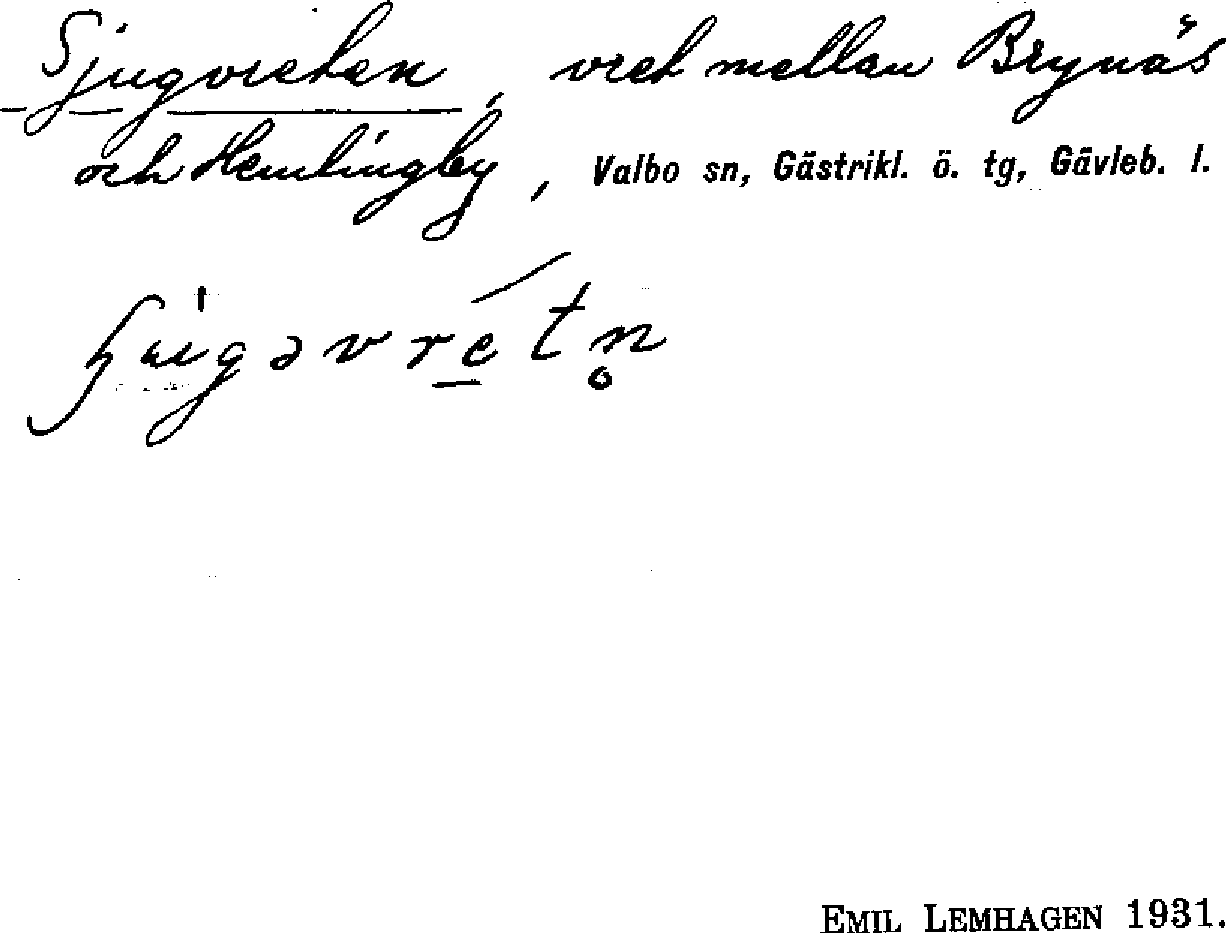 Sjugvreten, vret mellan Brynäs
och Hemlingby, Valbo sn, Gästrikl. ö. tg, Gävleb. l.
EMIL LEMHAGEN 1931.